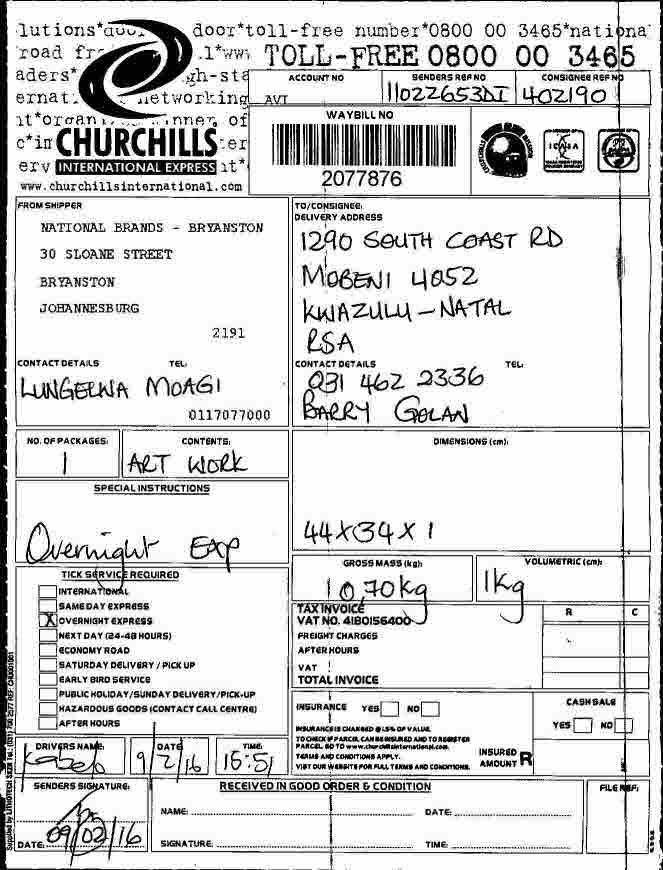 lutions*door door*toll-free number*0800 00 3465*nationa
road l*www TOLL-FREE 0800 00 3465
aders* gh-sta
ernat networking
nt*organ nner of
c*in CHURCHILLS er
erv INTERNATIONAL EXPRESS it*
www.churchillsinternational.com
ACCOUNT NO
AVT
SENDERS REF NO
11022653DI
CONSIGNEE REF NO
402190
WAYBILL NO
2077876
FROM SHIPPER
NATIONAL BRANDS - BRYANSTON
30 SLOANE STREET
BRYANSTON
JOHANNESBURG
2191
CONTACT DETAILS TEL:
LUNGELWA MOAGI
0117077000
TO/CONSIGNEE:
DELIVERY ADDRESS
1290 SOUTH COAST RD
MOBENI 4052
KWAZULU-NATAL
RSA
CONTACT DETAILS TEL:
031 462 2336
BARRY GOLAN
NO. OF PACKAGES:
1
CONTENTS:
ART WORK
SPECIAL INSTRUCTIONS
Overnight Exp
DIMENSIONS (cm):
44X34X1
GROSS MASS (kg):
10,70kg
VOLUMETRIC (cm):
1kg
TICK SERVICE REQUIRED
INTERNATIONAL
SAME DAY EXPRESS
X OVERNIGHT EXPRESS
NEXT DAY (24-48 HOURS)
ECONOMY ROAD
SATURDAY DELIVERY / PICK UP
EARLY BIRD SERVICE
PUBLIC HOLIDAY/SUNDAY DELIVERY/PICK-UP
HAZARDOUS GOODS (CONTACT CALL CENTRE)
AFTER HOURS
TAX INVOICE R C
VAT NO. 4180156400
FREIGHT CHARGES
AFTER HOURS
VAT
TOTAL INVOICE
INSURANCE YES NO
INSURANCE IS CHARGED @ 1.5% OF VALUE.
TO CHECK IF PARCEL CAN BE INSURED AND TO REGISTER
PARCEL GO TO www.churchillsinternational.com.
TERMS AND CONDITIONS APPLY.
VISIT OUR WEBSITE FOR FULL TERMS AND CONDITIONS.
INSURED
AMOUNT R
CASH SALE
YES NO
DRIVERS NAME:
Kabelo
DATE
9/2/16
TIME:
15:51
SENDERS SIGNATURE:
DATE: 09/02/16
RECEIVED IN GOOD ORDER & CONDITION
NAME: DATE:
SIGNATURE: TIME:
FILE REF: